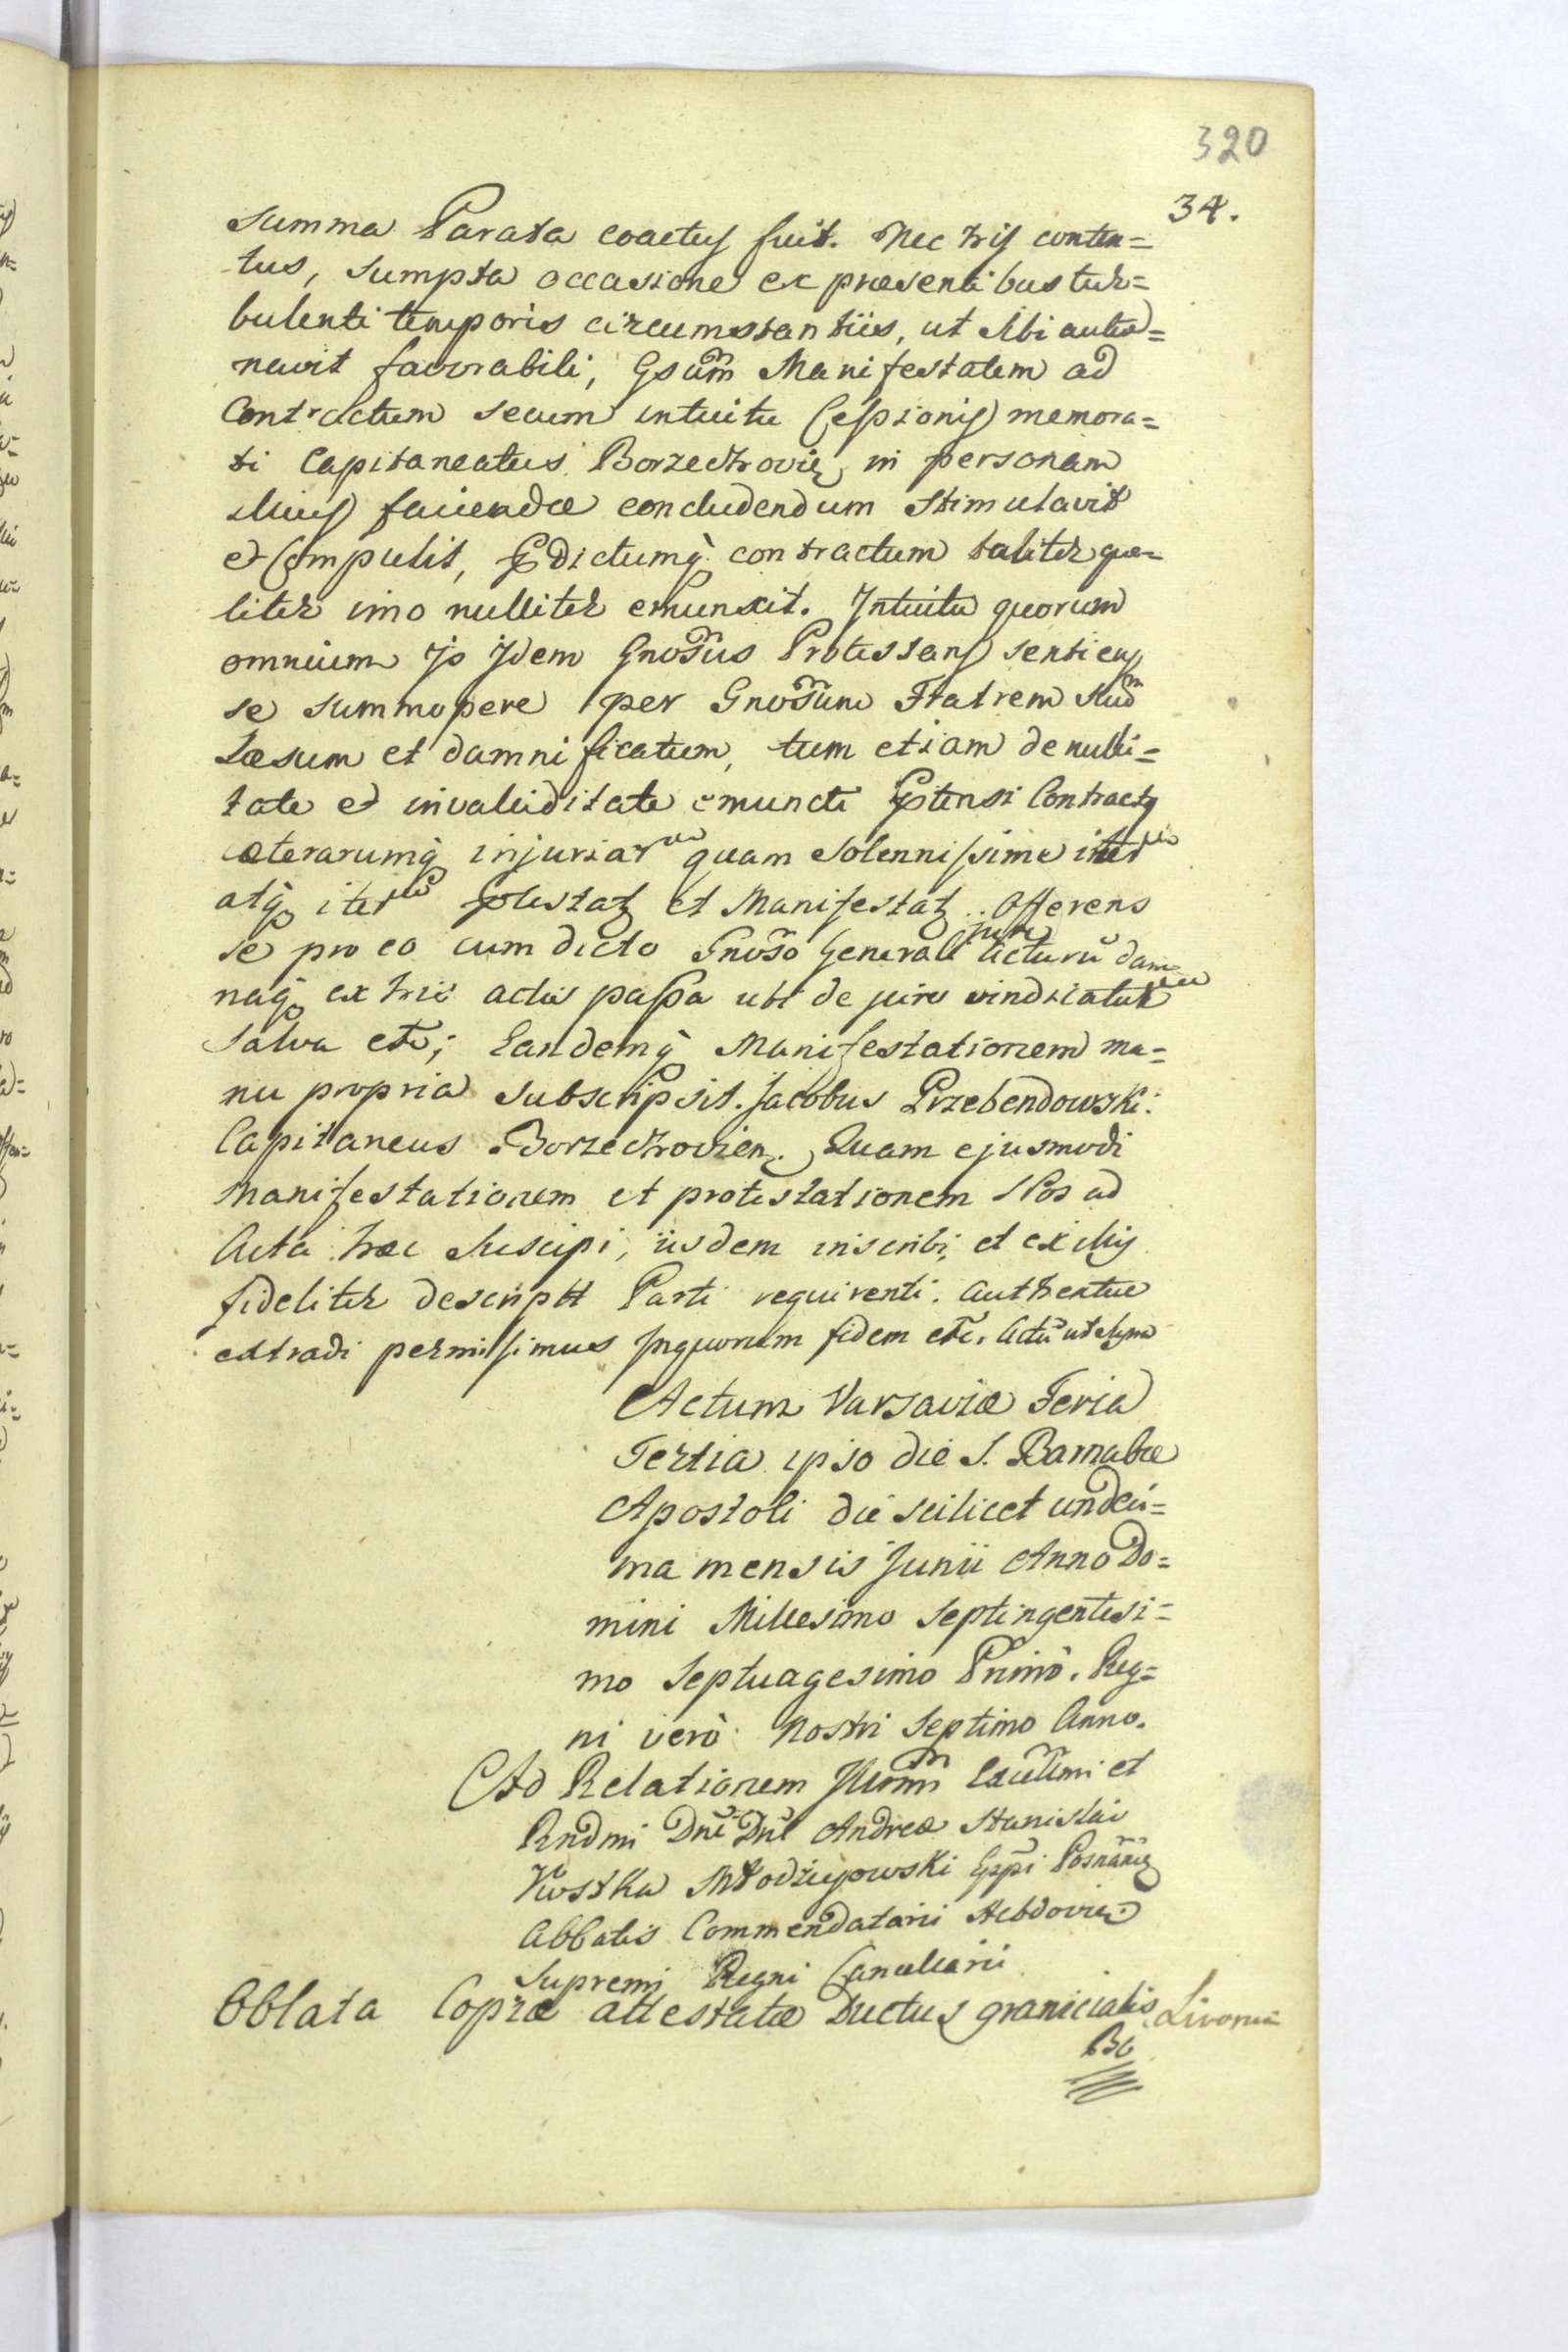 320
34.
summa Parata coactus fuit. Nec his conten=
tus, sumpta occasione ex præsentibus tur=
bulenti temporis circumstantiis, ut sibi autu=
navit favorabili, Gsum Manifestatem ad
Contractum secum intuitu Cessionis memora=
ti Capitaneatus Borzechoviẽ in personam
illius faciendæ concludendum stimulavit
et Compulit, Pdictumq̀ contractum taliter qua=
liter imo nulliter emunxit. Intuitu quorum
omnium jo Jdem Gnosus Protestans sentiens
se summopere per Gnosum Fratrem suũ
Læsum et damnificatum, tum etiam de nulli=
tate et invaliditate emuncti Ptensi Contractus
cæterarumq̀ injuriar quam solennissime iter
atq̀ iter Ptestat et Manifestat. Offerens
se pro eo cum dicto Gnoso Generali jure acturũ dam
naq̀ ex his actis passa ubi de jure vindicatur
Salva etc; Eandemq̀ Manifestationem ma=
nu propria subscripsit. Jacobus Przebendowski.
Capitaneus Borzechovien. Quam ejusmodi
Manifestationem et protestationem Nos ad
Acta hæc suscipi, iisdem inscribi, et ex illis
fideliter descriptt Parti requirenti authentice
extradi permissimus Inquorum fidem etc. Actũ ut supra
Actum Varsaviæ Feria
Tertia ipso die S. Barnabæ
Apostoli die scilicet undeci=
ma mensis Junii Anno Do=
mini Millesimo Septingentesi=
mo Septuagesimo Primò. Reg=
ni verò Nostri Septimo Anno.
Ad Relationem Illũmi Excellmi et
Rndmi Dnĩ Dnĩ Andreæ Stanislai
Kostka Młodziejowski Eppi Posnaniẽ
Abbatis Commendatarii Hebdoviẽ
Supremi Regni Cancellarii
Oblata Copiæ attestatæ Ductus granicialis Livoniæ